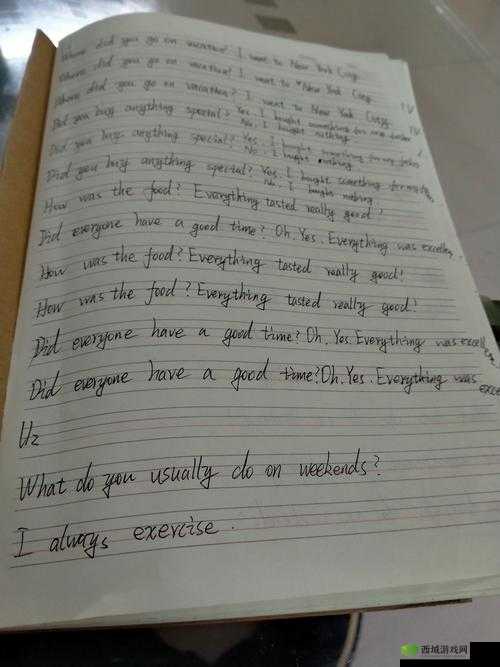 Where did you go on vacation? I went to New York City.
Where did you go on vacation? I went to New York City.
Where did you go on vacation? I went to New York City.
Did you buy anything special? Yes, I bought something for my father
No, I bought nothing
Did you buy anything special? Yes, I bought something for my father
No, I bought nothing
Did you buy anything special? Yes, I bought something for my
No, I bought nothing
How was the food? Everything tasted really good!
Did everyone have a good time? Oh, Yes. Everything was excellen
How was the food? Everything tasted really good!
How was the food? Everything tasted really good!
Did everyone have a good time? Oh, Yes. Everything was excelle
Did everyone have a good time? Oh, Yes. Everything was exce
U2
What do you usually do on weekends?
I always exercise.
西域游戏网